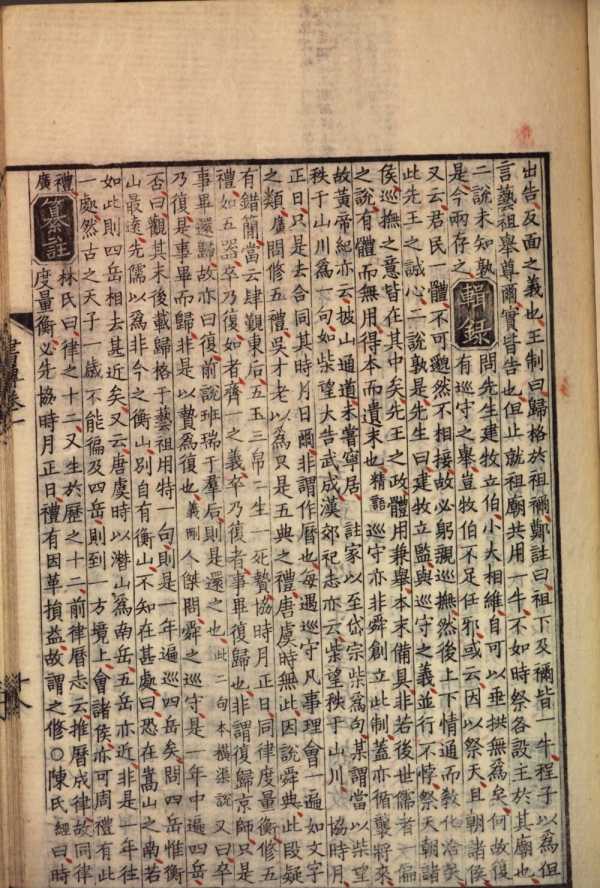 出告反面之義也王制曰歸格於祖禰鄭註曰祖下及禰皆一牛程子以爲但
言藝祖舉尊爾實皆告也但止就祖廟共用一牛不如時祭各設主於其廟也
二說未知孰
是今兩存之
輯錄
問先生建牧立伯小大相維自可以垂拱無爲矣何故復
有巡守之舉豈牧伯不足任邪或云因以祭天且朝諸侯
又云君民一體不可邈然不相接故必躬親巡撫然後上下情通而敎化洽矣
此先王之誠心二說孰是先生曰建牧立監與巡守之義並行不悖祭天朝諸
侯巡撫之意皆在其中矣先王之政體用兼舉本末備具非若後世儒者一偏
之說有體而無用得本而遺末也精語巡守亦非舜創立此制蓋亦循襲將來
故黃帝紀亦云披山通道未嘗寧居 註家以至岱宗柴爲句某謂當以柴望
秩于山川爲一句如柴望大告武成漢郊祀志亦云柴望秩于山川 協時月
正日只是去合同其時月日爾非謂作曆也每遇巡守凡事理會一遍如文字
之類 廣問修五禮吳才老以爲只是五典之禮唐虞時無此因說舜典此段疑
有錯簡當云肆覲東后五玉三帛二生一死贄協時月正日同律度量衡修五
禮如五器卒乃復如者齊一之義卒乃復者事畢復歸也非謂復歸京師只是
事畢還歸故亦曰復前說班瑞于羣后則是還之也此二句本橫渠說又曰卒
乃復是事畢而歸非是以贄爲復也義剛人傑問舜之巡守是一年中遍四岳
否曰觀其末後載歸格于藝祖用特一句則是一年遍巡四岳矣問四岳惟衡
山最遠先儒以爲非今之衡山別自有衡山不知在甚處曰恐在嵩山之南若
如此則四岳相去甚近矣又云唐虞時以潛山爲南岳五岳亦近非是一年往
一處然古之天子一歲不能徧及四岳則到一方境上會諸侯亦可周禮有此
禮
廣
纂註
林氏曰律之十二又生於歷之十二前律曆志云推曆成律故同律
度量衡必先協時月正日禮有因革損益故謂之修○陳氏經曰時